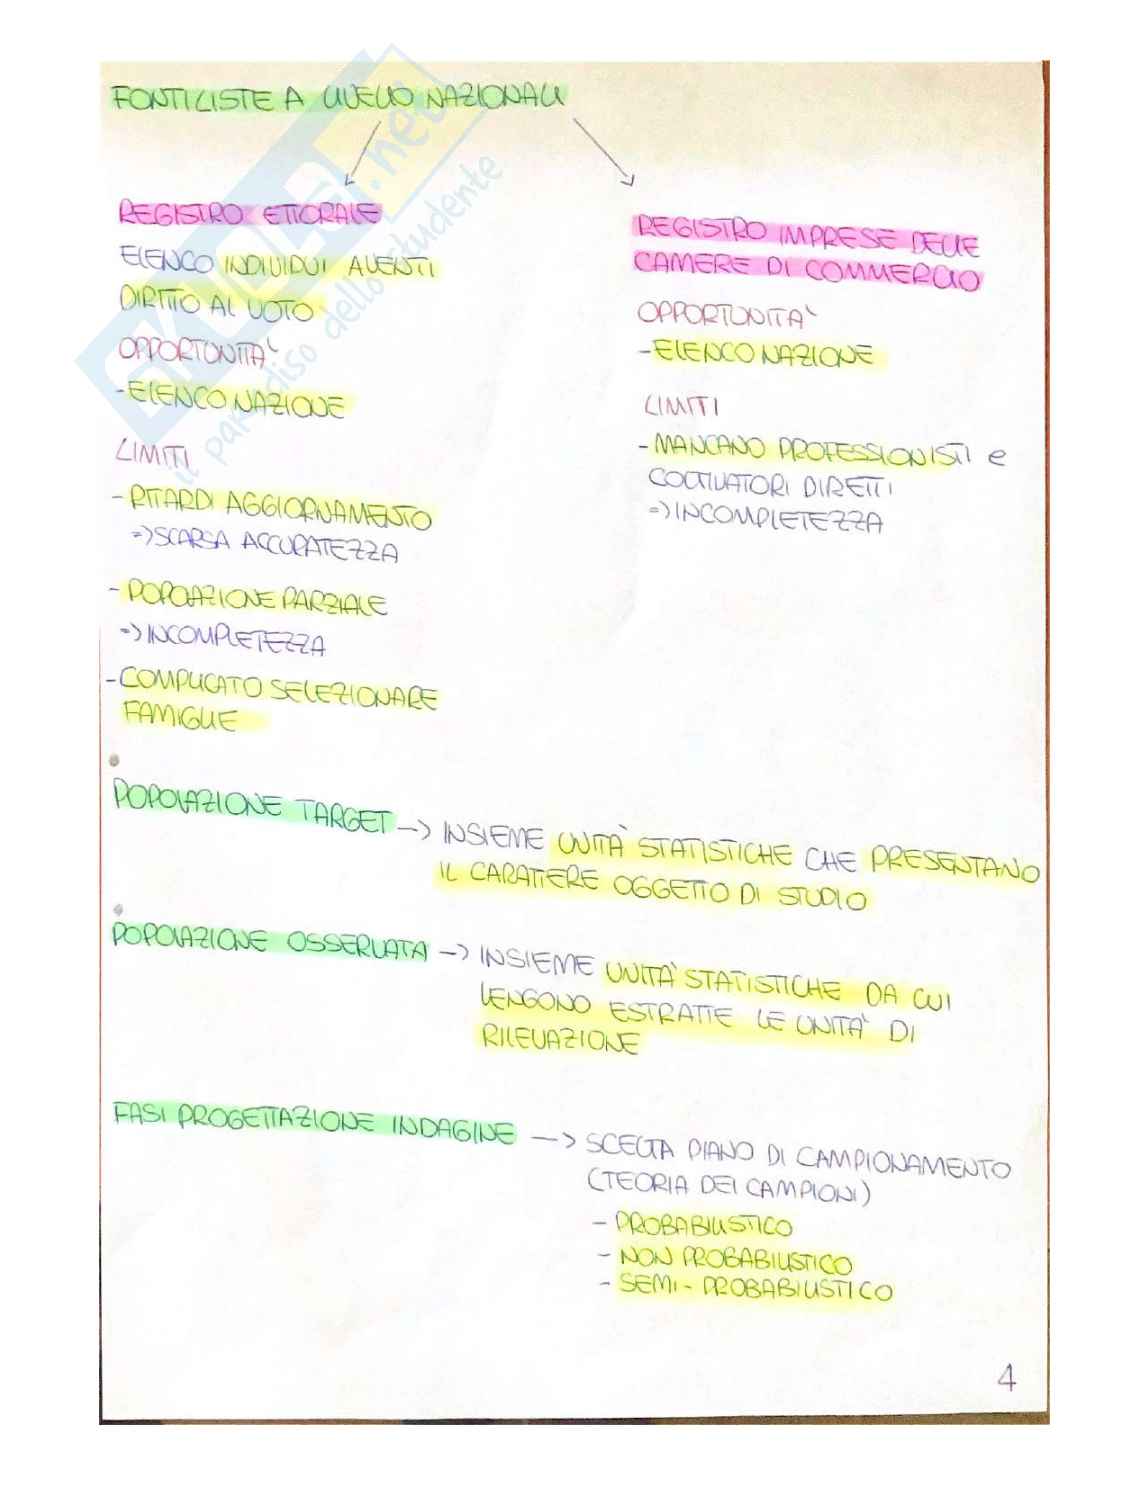 FONTI LISTE A LIVELLO NAZIONALI
REGISTRO ETTORALE
ELENCO INDIVIDUI AVENTI
DIRITTO AL VOTO
OPPORTUNITA'
- ELENCO NAZIONE
LIMITI
- RITARDI AGGIORNAMENTO
=> SCARSA ACCURATEZZA
- POPOLAZIONE PARZIALE
=> INCOMPLETEZZA
- COMPLICATO SELEZIONARE
FAMIGLIE
REGISTRO IMPRESE DELLE
CAMERE DI COMMERCIO
OPPORTUNITA'
- ELENCO NAZIONE
LIMITI
- MANCANO PROFESSIONISTI e
COLTIVATORI DIRETTI
=> INCOMPLETEZZA
POPOLAZIONE TARGET -> INSIEME UNITA' STATISTICHE CHE PRESENTANO
IL CARATTERE OGGETTO DI STUDIO
POPOLAZIONE OSSERVATA -> INSIEME UNITA' STATISTICHE DA CUI
VENGONO ESTRATTE LE UNITA' DI
RILEVAZIONE
FASI PROGETTAZIONE INDAGINE -> SCELTA PIANO DI CAMPIONAMENTO
(TEORIA DEI CAMPIONI)
- PROBABILISTICO
- NON PROBABILISTICO
- SEMI-PROBABILISTICO
4
SKUOLA.net
il paradiso dello studente